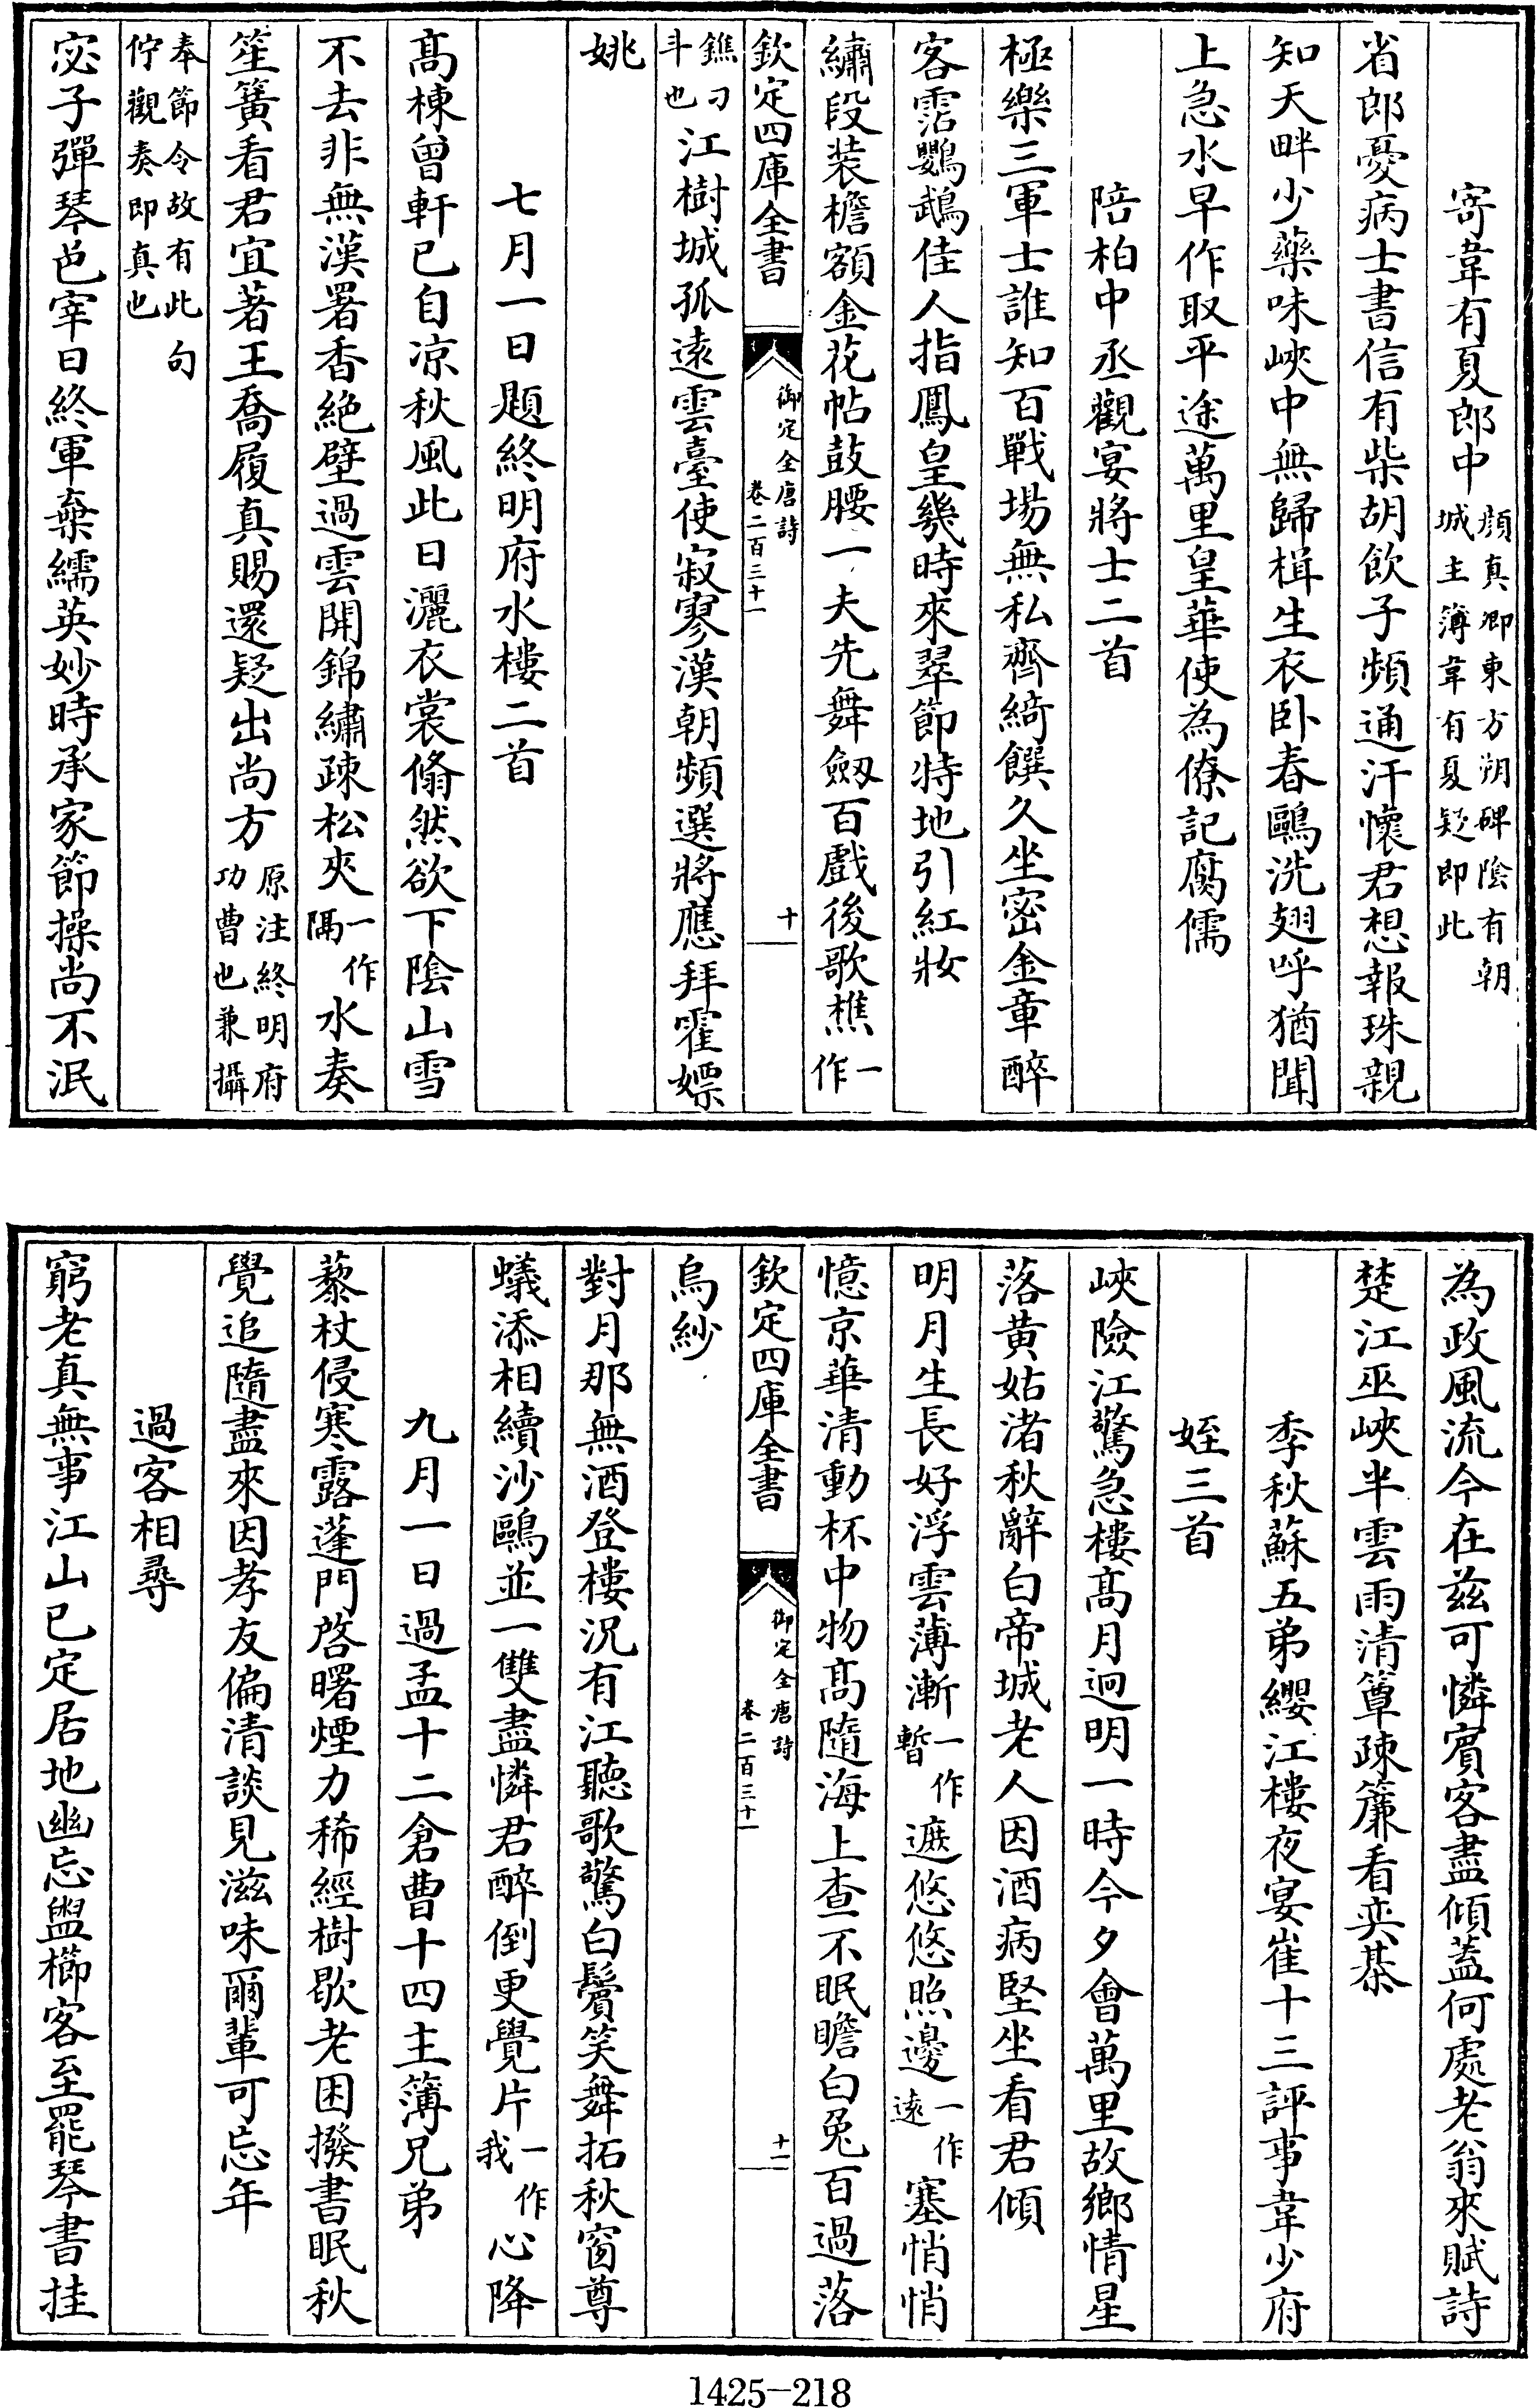 寄韋有夏郎中顔真卿東方朔碑陰有朝城主簿韋有夏疑即此
省郎憂病士書信有柴胡飲子頻通汗懷君想報珠親
知天畔少藥味峽中無歸楫生衣卧春鷗洗翅呼猶聞
上急水早作取平途萬里皇華使為僚記腐儒
陪柏中丞觀宴將士二首
極樂三軍士誰知百戰場無私齊綺饌久坐密金章醉
客霑鸚鵡佳人指鳳皇幾時來翠節特地引紅妝
繡段装檐額金花帖鼓腰一夫先舞劔百戲後歌樵一作
欽定四庫全書
御定全唐詩
卷二百三十一
十
鐎刁斗也江樹城孤遠雲臺使寂寥漢朝頻選將應拜霍嫖
姚
七月一日題終明府水樓二首
髙棟曾軒已自凉秋風此日灑衣裳翛然欲下陰山雪
不去非無漢署香絶壁過雲開錦繡疎松夾一作隔水奏
笙簧看君宜著王喬履真賜還疑出尚方原注終明府功曹也兼攝
奉節令故有此句佇觀奏即真也
宓子彈琴邑宰日終軍棄繻英妙時承家節操尚不泯
為政風流今在兹可憐賓客盡傾蓋何處老翁來賦詩
楚江巫峽半雲雨清簟疎簾看奕棊
季秋蘇五弟纓江樓夜宴崔十三評事韋少府
姪三首
峽險江驚急樓髙月迥明一時今夕會萬里故鄉情星
落黄姑渚秋辭白帝城老人因酒病堅坐看君傾
明月生長好浮雲薄漸一作暫遮悠悠照邊一作遠塞悄悄
憶京華清動杯中物髙隨海上查不眠瞻白兔百過落
欽定四庫全書
御定全唐詩
卷二百三十一
十一
烏紗
對月那無酒登樓況有江聽歌驚白鬢笑舞拓秋窗尊
蟻添相續沙鷗並一雙盡憐君醉倒更覺片一作我心降
九月一日過孟十二倉曹十四主簿兄弟
藜杖侵寒露蓬門啓曙煙力稀經樹歇老困撥書眠秋
覺追隨盡來因孝友偏清談見滋味爾輩可忘年
過客相尋
窮老真無事江山已定居地幽忘盥櫛客至罷琴書挂
1425-218